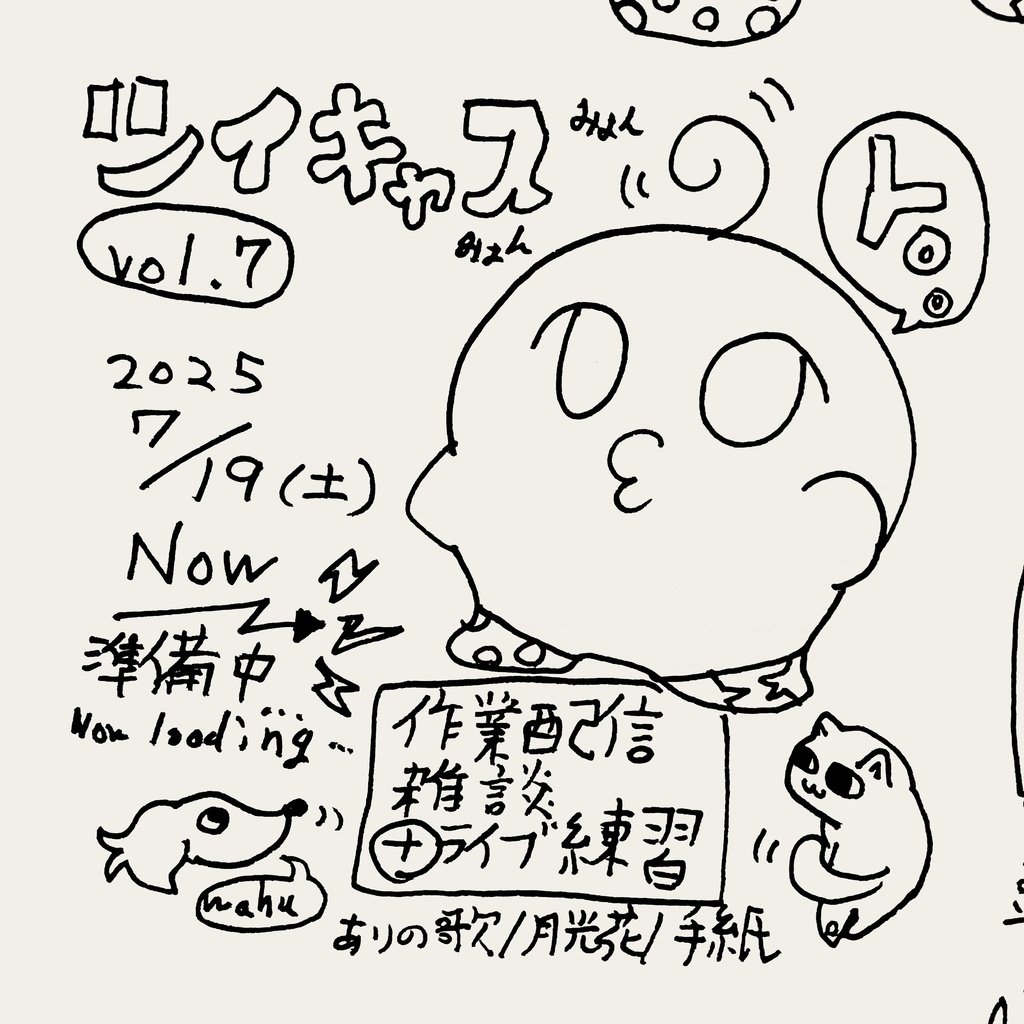 ツイキャス
みょん
みょん
vol.7
ト。
2025
7/19(土)
Now
準備中
Now loading...
作業配信
雑談
+ライブ練習
wahu
ありの歌/月光花/手紙